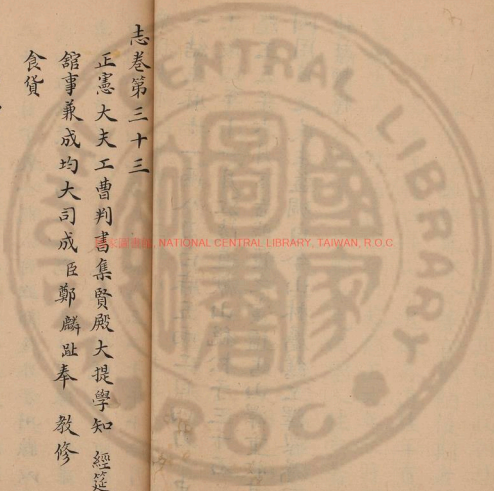 志卷第三十三
正憲大夫工曹判書集賢殿大提學知 經筵
舘事兼成均大司成臣鄭麟趾奉 教修
食貨
國家圖書館, NATIONAL CENTRAL LIBRARY, TAIWAN, R.O.C
NATIONAL CENTRAL LIBRARY
ROC
國家圖書館